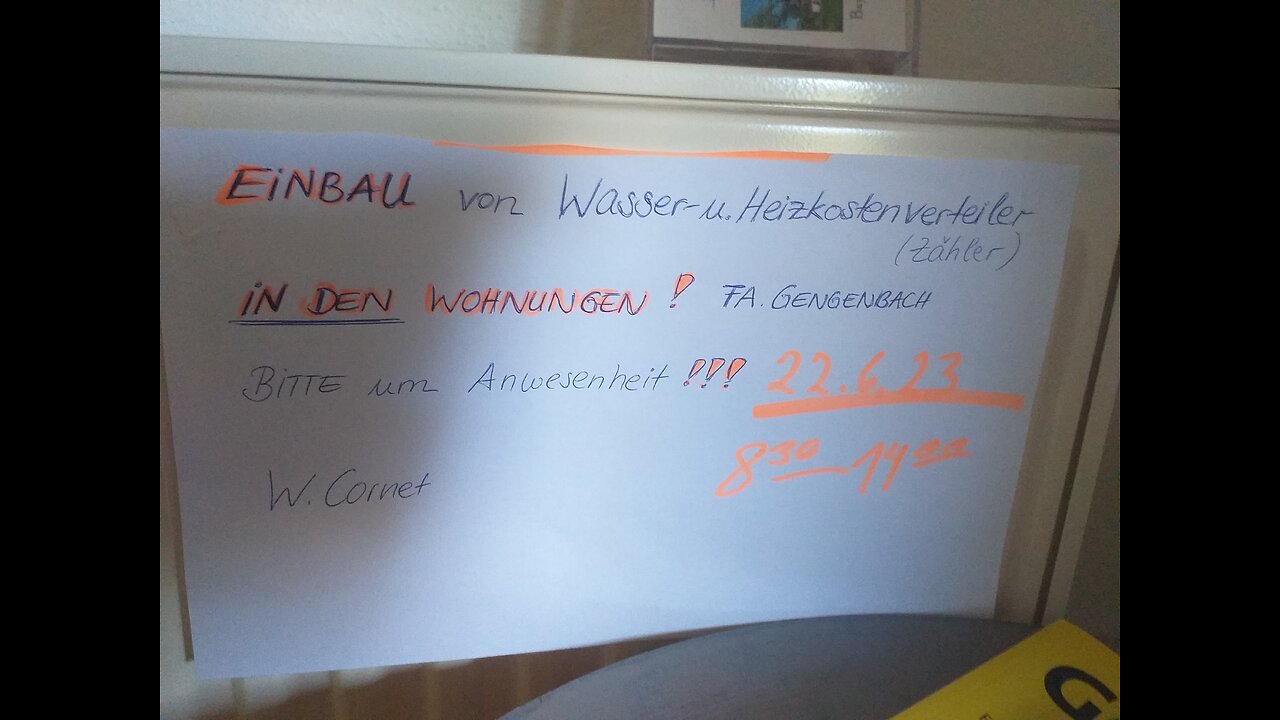 EiNBAU von Wasser-u. Heizkostenverteiler
(Zähler)
iN DEN WOHNUNGEN! FA. GENGENBACH
BiTTE um Anwesenheit !!! 22.6.23
8³⁰ - 14⁰⁰
W. Cornet
G